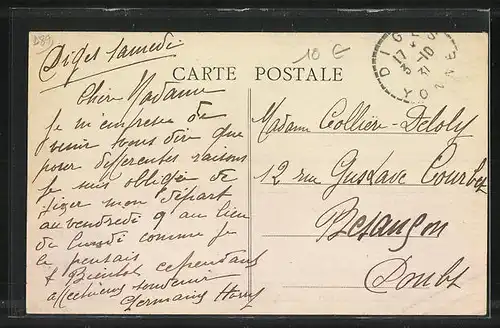 289
Diges samedi
10 €
CARTE POSTALE
DIGES
17 *
3-10
31
YONNE
Chère Madame
Je m'empresse de
venir vous dire que
pour differentes raisons
je suis obligée de
fixer mon départ
au vendredi 9 au lieu
de lundi comme je
le pensais
à Bientôt cependant
affectueux souvenir
Germaine
Madame Collière-Deloly
12 rue Gustave Courbet
Besançon
Doubs